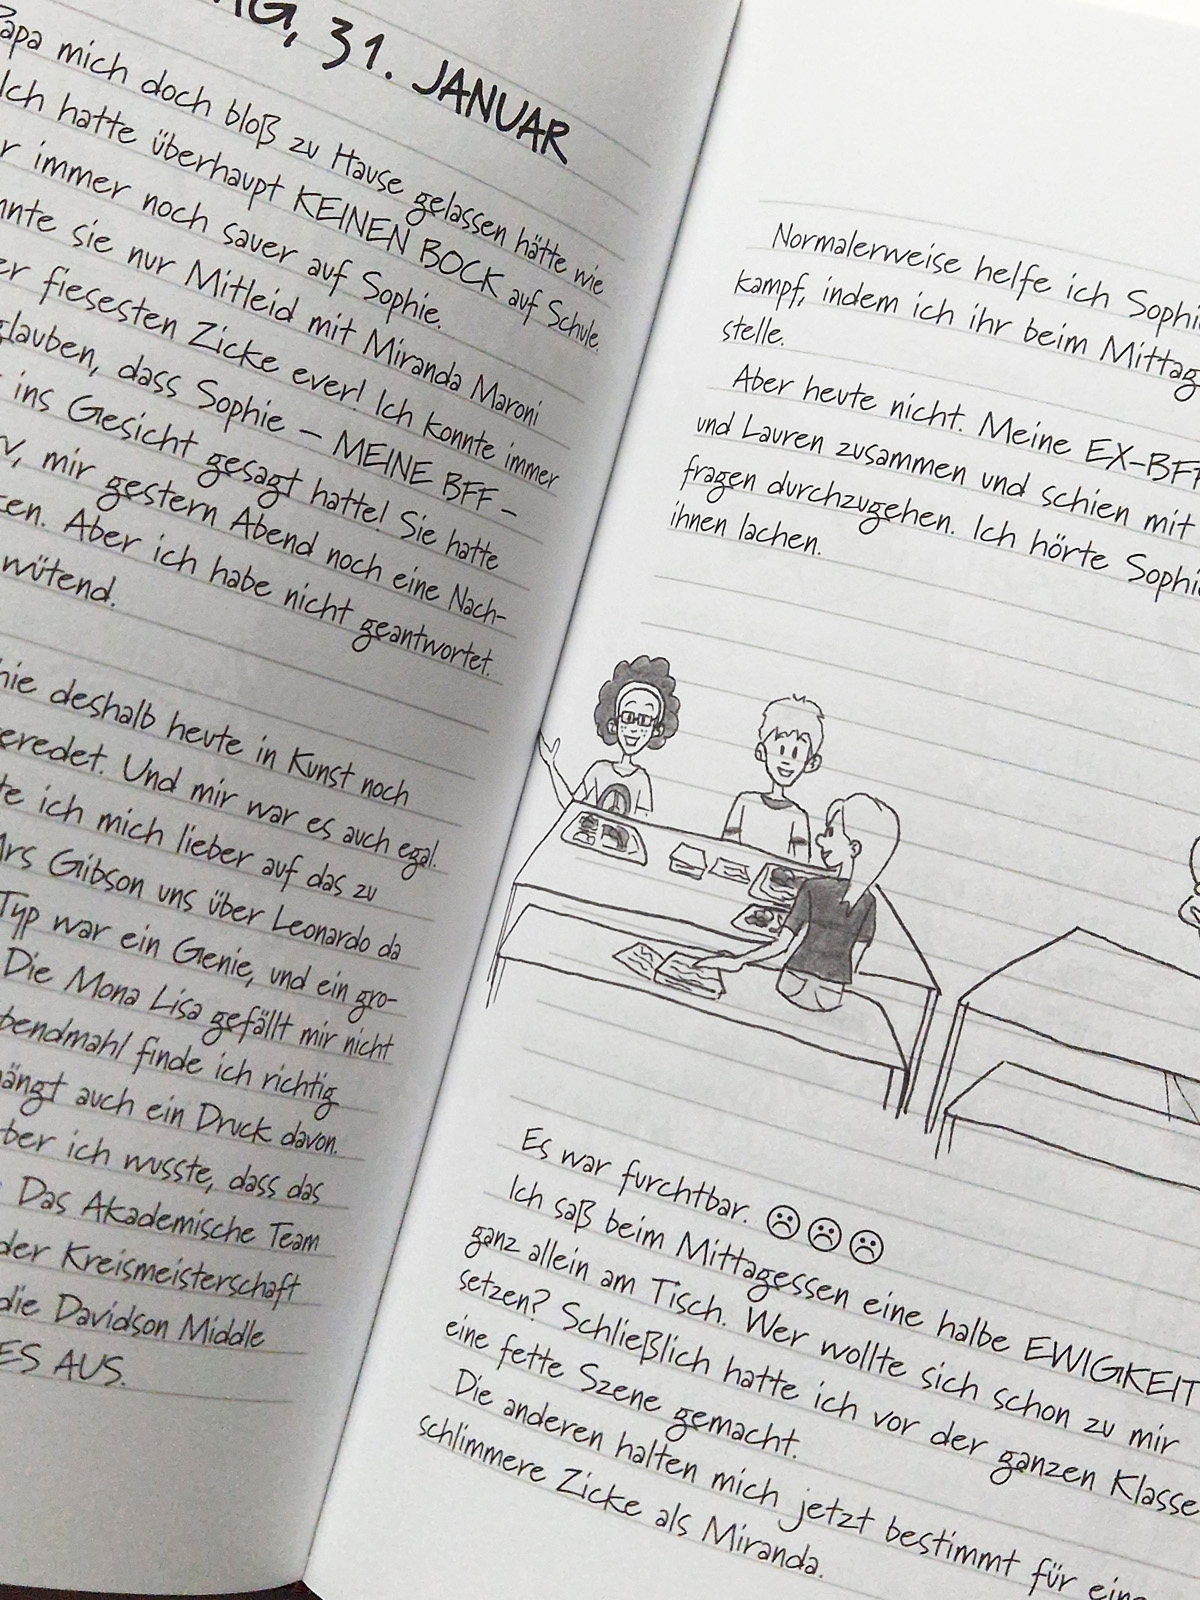 31. JANUAR
Papa mich doch bloß zu Hause gelassen hätte wie
Ich hatte überhaupt KEINEN BOCK auf Schule.
r immer noch sauer auf Sophie.
nnte sie nur Mitleid mit Miranda Maroni
er fiesesten Zicke ever! Ich konnte immer
glauben, dass Sophie – MEINE BFF –
ins Gesicht gesagt hatte! Sie hatte
v, mir gestern Abend noch eine Nach-
ten. Aber ich habe nicht geantwortet.
wütend.
hie deshalb heute in Kunst noch
eredet. Und mir war es auch egal.
te ich mich lieber auf das zu
Mrs Gibson uns über Leonardo da
Typ war ein Genie, und ein gro-
Die Mona Lisa gefällt mir nicht
bendmahl finde ich richtig
hängt auch ein Druck davon.
ber ich wusste, dass das
Das Akademische Team
der Kreismeisterschaft
die Davidson Middle
ES AUS.
Normalerweise helfe ich Sophie
kampf, indem ich ihr beim Mittag
stelle.
Aber heute nicht. Meine EX-BFF
und Lauren zusammen und schien mit
fragen durchzugehen. Ich hörte Sophie
ihnen lachen.
Es war furchtbar. ☹☹☹
Ich saß beim Mittagessen eine halbe EWIGKEIT
ganz allein am Tisch. Wer wollte sich schon zu mir
setzen? Schließlich hatte ich vor der ganzen Klasse
eine fette Szene gemacht.
Die anderen halten mich jetzt bestimmt für eine
schlimmere Zicke als Miranda.